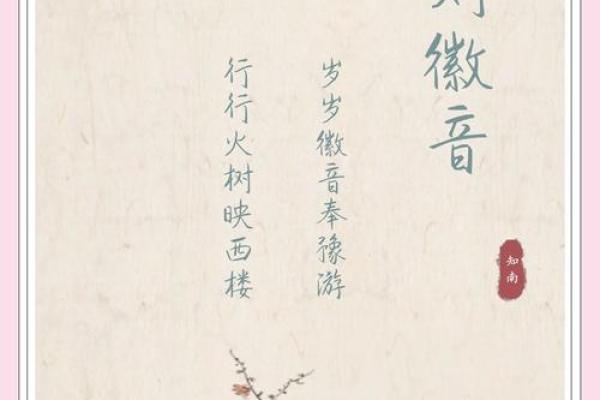 徽音
岁岁徽音奉豫游
行行火树映西楼
知南